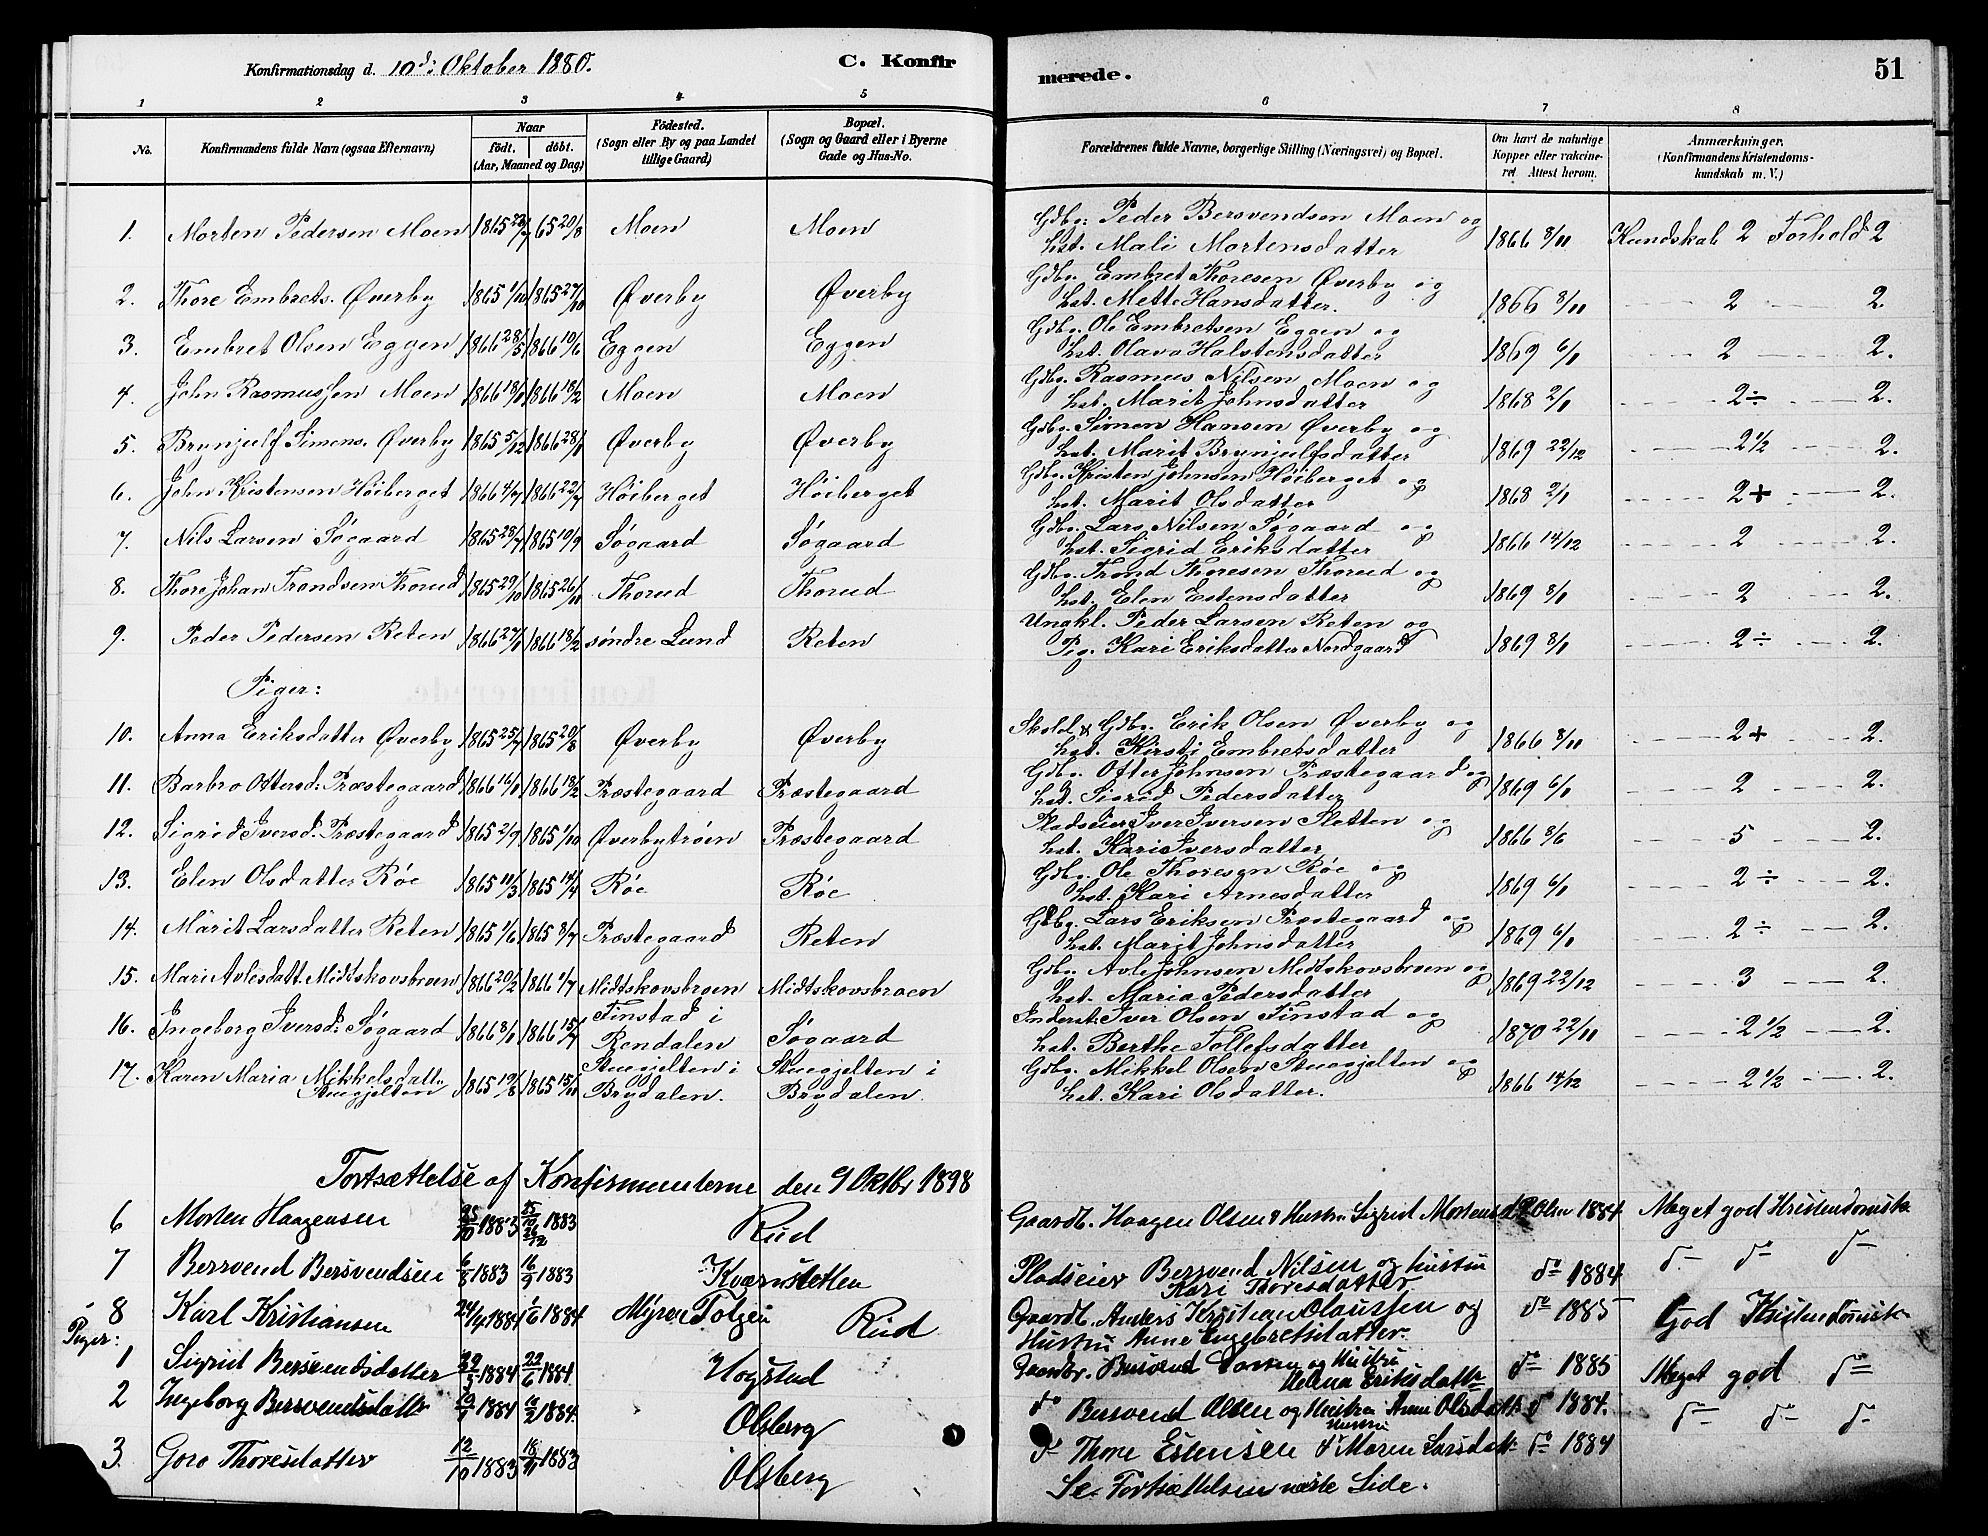 Konfirmationsdag d. 10d: Oktober 1880. C. Konfir
merede. 51
1 2 3 4 5 6 7 8
No. Konfirmandens fulde Navn (ogsaa Efternavn) Naar födt. döbt. (Aar, Maaned og Dag) Födested. (Sogn eller By og paa Landet tillige Gaard) Bopæl. (Sogn og Gaard eller i Byerne Gade og Hus-No. Forældrenes fulde Navne, borgerlige Stilling (Næringsvei) og Bopæl. Om havt de naturlige Kopper eller vakcineret Attest herom. Anmærkninger. (Konfirmandens Kristendomskundskab m. V.)
1. Morten Pedersen Moen 1865 23/7 65 20/8 Moen Moen Gdbr: Peder Bersvendsen Moen og
hst. Mali Mortensdatter 1866 8/11 Kundskab 2 Forhold 2
2. Thore Embrets. Øverby 1865 1/10 1865 27/10 Øverby Øverby Gdbr. Embret Thoresen Øverby og
hst. Mette Hansdatter. 1866 8/11 2 2.
3. Embret Olsen Eggen 1866 28/5 1866 10/6 Eggen Eggen Gdbr. Ole Embretsen Eggen og
hst. Olava Halstensdatter 1869 6/1 2 2.
4. John Rasmussen Moen 1866 18/1 1866 18/2 Moen Moen Gdbr. Rasmus Nilsen Moen og
hst. Marit Johnsdatter 1868 2/1 2÷ 2.
5. Brynjulf Simens. Øverby 1865 5/12 1866 28/1 Øverby Øverby Gdbr. Simen Hansen Øverby og
hst. Marit Brynjulfsdatter 1869 22/12 2 1/2 2.
6. John Kristensen Höiberget 1866 4/7 1866 22/7 Höiberget Höiberget Gdbr. Kristen Johnsen Höiberget og
hst. Marit Olsdatter 1868 2/1 2+ 2.
7. Nils Larsen Søgaard 1865 28/7 1865 10/9 Søgaard Søgaard Gdbr. Lars Nilsen Søgaard og
hst. Sigrid Eriksdatter 1866 14/12 2 2.
8. Thore Johan Trondsen Thorud 1865 29/10 1865 26/11 Thorud Thorud Gdbr. Trond Thoresen Thorud og
hst. Elen Estensdatter 1869 8/1 2 2.
9. Peder Pedersen Reten 1866 27/1 1866 18/2 søndre Lund Reten Ungkl. Peder Larsen Reten og
Pig. Kari Eriksdatter Nordgaard 1869 8/1 2÷ 2.
Piger:
10. Anna Eriksdatter Øverby 1865 25/7 1865 20/8 Øverby Øverby Skoll. & Gdbr. Erik Olsen Øverby og
hst. Kirsti Embretsdatter 1866 8/11 2+ 2.
11. Barbro Ottersd: Præstegaard 1866 16/1 1866 18/2 Præstegaard Præstegaard Gdbr. Otter Johnsen Præstegaard og
hst. Sigrid Pedersdatter 1869 6/1 2 2.
12. Sigrid Iversd. Præstegaard 1865 2/9 1865 1/10 Øverbytröen Præstegaard Pladseier Iver Iversen Sletten og
hst. Kari Iversdatter 1866 8/6 5 2.
13. Elen Olsdatter Röe 1865 11/3 1865 14/4 Röe Röe Gdbr. Ole Thoresen Röe og
hst. Kari Arnesdatter 1869 6/1 2÷ 2.
14. Marit Larsdatter Reten 1865 1/6 1865 8/7 Præstegaard Reten Gdbr. Lars Eriksen Præstegaard og
hst. Marit Johnsdatter 1869 6/1 2÷ 2.
15. Mari Avlesdatt. Midtskovsbroen 1866 20/2 1866 1/7 Midtskovsbroen Midtskovsbroen Gdbr. Avle Johnsen Midtskovsbroen og
hst. Maria Pedersdatter 1869 22/12 3 2.
16. Ingeborg Iversd: Søgaard 1866 8/1 1866 15/7 Finstad i Rendalen Søgaard Inderst: Iver Olsen Finstad og
hst. Berthe Tollefsdatter 1870 22/11 2 1/2 2.
17. Karen Maria Mikkelsdatt. Stuegjelten 1865 19/8 1865 15/10 Stuegjelten i Brydalen. Stuegjelten i Brydalen. Gdbr. Mikkel Olsen Stuegjelten og
hst. Kari Olsdatter. 1866 14/12 2 1/2 2.
Fortsættelse af Konfirmenterne den 9 Oktbr 1898
6 Morten Haagensen 25/10 1883 1883 Rud Gaardb. Haagen Olsen & Hustru Sigrid Mortensd. Olsen 1884 Meget god Kristendomsk.
7 Bersvend Bersvendsen 6/8 1883 16/9 1883 Kværnsletten Pladseier Bersvend Nilsen og hustru
Kari Thoresdatter do 1884 do do do
8 Karl Kristiansen 24/4 1884 1/6 1884 Myren Tolgen Rud Gaardb. Anders Kristian Olaussen og
Hustru Anne Engebretsdatter. do 1885 God Kristendomsk.
Piger:
1 Sigrid Bersvendsdatter 1884 22/6 1884 Hogstad Gaardbr. Bersvend Larsen og Hustru
Helena Eriksdattr do 1885 Meget god do
2 Ingeborg Bersvendsdattr 1884 10/2 1884 Olsberg do Bersvend Olsen og Hustru Anne Olsdatt. do 1884. do do do
3. Goro Thoresdatter 12/10 1883 18/11 1883 Olsberg do Thore Estensen & Hustru Maren Larsdatt. do 1884
Se Fortsættelsen næste Side.